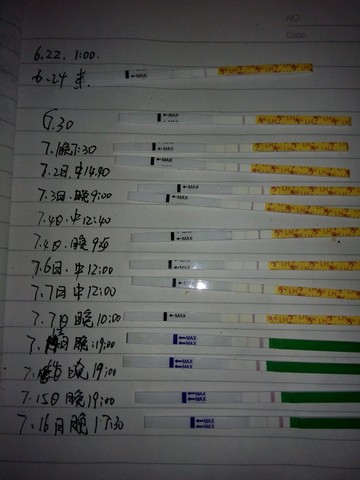 NO.
Date.
6.22. 1:00.
6.24 来. MAX LH
6.30 MAX LH
7.1晚7:30 MAX LH
7.2日.中14:40 MAX LH
7.3日.晚9:00 MAX LH
7.4日.中12:40 MAX LH
7.4日.晚 MAX LH
7.6日.中12:00 MAX LH
7.7日中12:00 MAX LH
7.7日晚10:00 MAX LH
7. 晚19:00 MAX MAX
7. 晚19:00 MAX MAX
7.15日晚19:00 MAX MAX
7.16日晚17:30 MAX MAX